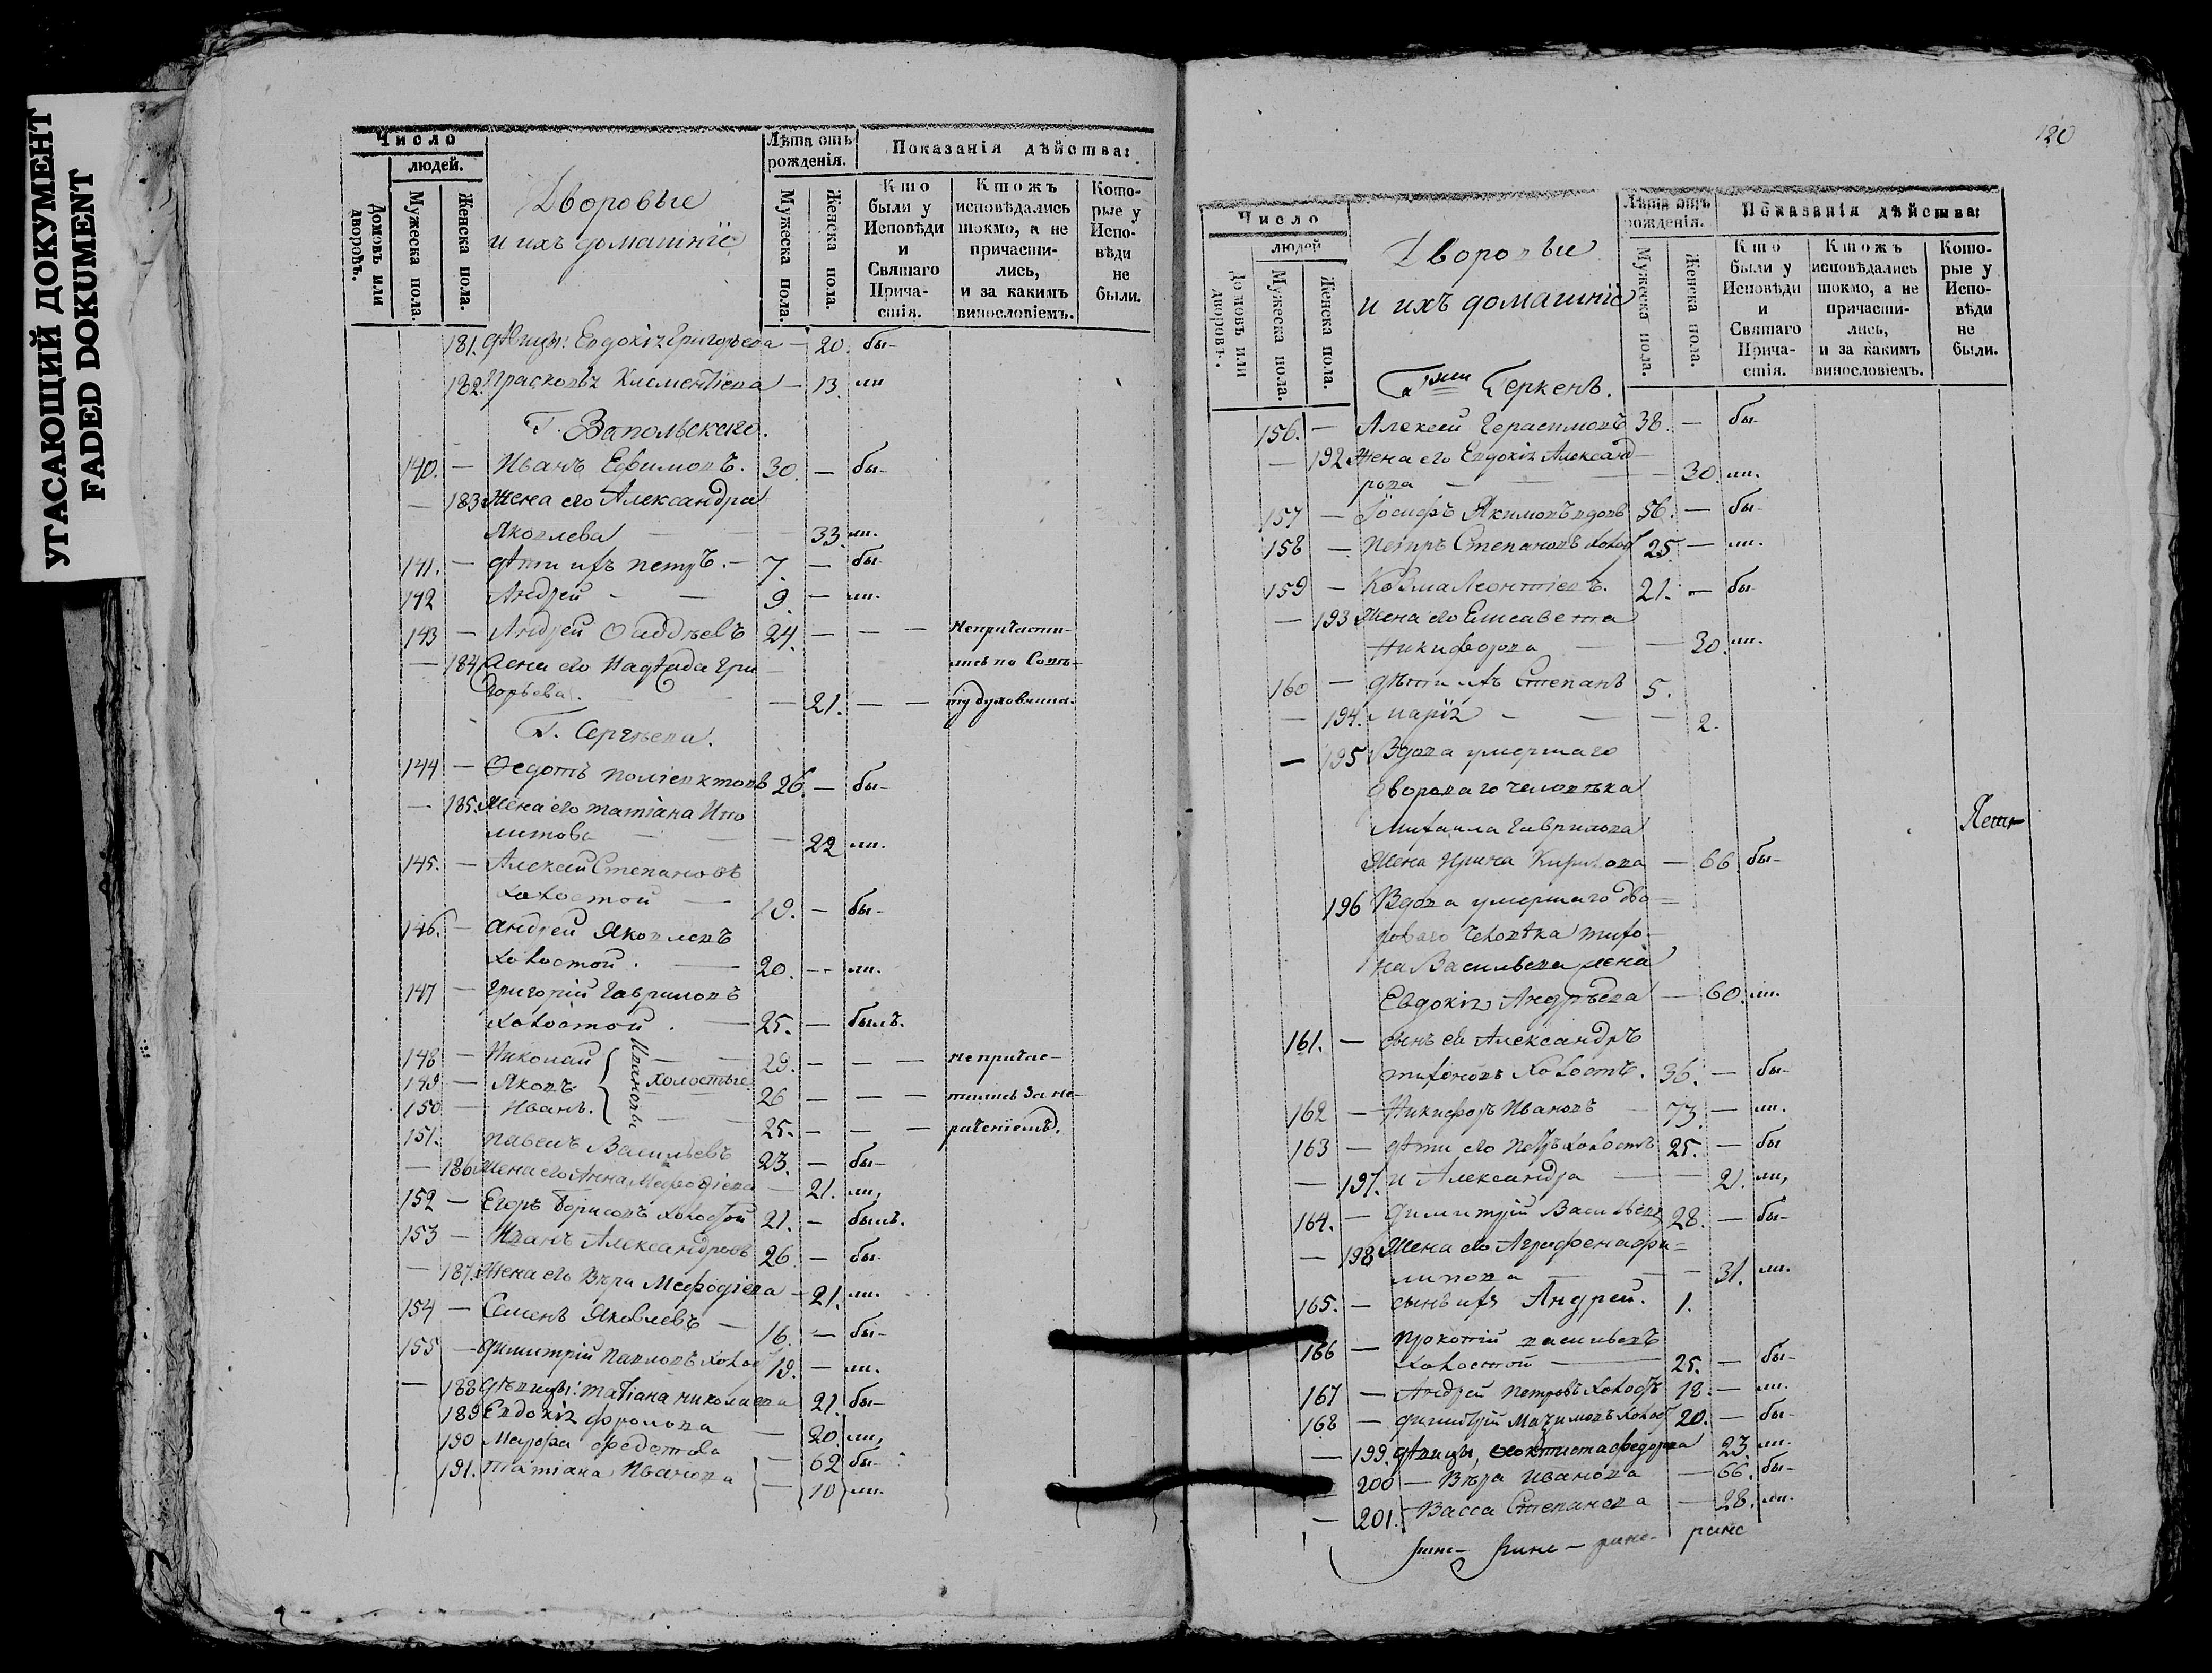 УГАСАЮЩИЙ ДОКУМЕНТ
FADED DOKUMENT
Число
людей.
Домовъ или дворовъ.
Мужеска пола.
Женска пола.
Дворовые
и ихъ домашнїе
Лѣта отъ рожденїя.
Мужеска пола.
Женска пола.
Показанїя дѣйства:
Кто были у Исповѣди и Святаго Прича-стїя.
Ктожъ исповѣдались токмо, а не причасти-лись, и за какимъ винословїемъ.
Кото-рые у Испо-вѣди не были.
181. дѣвицы: Евдокїя Григорьева — 20. бы-
182. Прасковья Климентїева — 13. ли
Г. Запольскаго.
140. — Иванъ Ефимовъ. 30. — бы-
— 183 Жена его Александра
Яковлева — 33. ли.
141. — дѣти ихъ Петръ. — 7. — бы-
142 Андрей — 9. — ли.
143 — Андрей Фаддѣевъ 24. — — — Непричасти-
— 184 Жена его Надежда Гри- лись по Совѣ-
горьева. — 21. — — ту духовника.
Г. Сергѣева.
144 — Ѳедотъ Полїевктовъ 26. — бы-
— 185. Жена его Татїана Ипо
литова — 22 ли.
145. — Алексѣй Степановъ
холостой — 19. — бы-
146. — Андрей Яковлевъ
холостой. — 20. — ли.
147 — Григорїй Гавриловъ
холостой. — 25. — былъ.
148 — Николай 29. — — — непричас-
149 — Яковъ Ивановы холостые 26 — — — тились за не-
150 — Иванъ. 25. — — — раченїемъ.
151. Павелъ Васильевъ 23. — бы-
— 186 Жена его Анна Мефодїева — 21. ли,
152 — Егоръ Борисовъ холостой 21. — былъ.
153 — Иванъ Александровъ 26. — бы-
— 187. Жена его Вѣра Мефодїева — 21. ли.
154 — Семенъ Яковлевъ — 16. — бы-
155 — Димитрїй Павловъ холос 19. — ли.
— 188 дѣвицы: Татїана Николаева 21. бы-
189 Евдокїя Фролова — 20. ли,
190 Марфа Федотова — 62 бы-
191. Татїана Иванова — 10 ли.
120
Число
людей
Домовъ или дворовъ.
Мужеска пола.
Женска пола.
Дворовые
и ихъ домашнїе
Лѣта отъ рожденїя.
Мужеска пола.
Женска пола.
Показанїя дѣйства:
Кто были у Исповѣди и Святаго Прича-стїя.
Ктожъ исповѣдались токмо, а не причасти-лись, и за какимъ винословїемъ.
Кото-рые у Испо-вѣди не были.
Гжи Геркенъ.
156. — Алексей Герасимовъ 38. — бы-
— 192 Жена его Евдокїя Александ-
рова — — 30. ли.
157 — Їосифъ Якимовъ вдовъ 56. — бы-
158 — Петръ Степановъ холос 25. — ли.
159 — Козма Леонтїевъ. 21. — бы-
— 193 Жена его Елисавета
Никифорова — 30. ли.
160 — дѣти ихъ Степанъ 5.
— 194. Марїя — — 2.
— 195 Вдова умершаго
двороваго человѣка
Михаила Гаврилова
Жена Ирина Кирилова — 66 бы-
196 Вдова умершаго дво=
роваго человѣка Тихо-
на Васильева жена
Евдокїя Андрѣева — 60. ли.
161. — сынъ ея Александръ
Тихоновъ холостъ. 36. — бы-
162 — Никифоръ Ивановъ — 73. — ли.
163 — дѣти его Петръ холостъ 25. — бы
— 197. и Александра — 21. ли,
164. — Димитрїй Васильевъ 28. — бы-
— 198 Жена его Агрофена Фи=
липова — 31. ли.
165. — сынъ ихъ Андрей. 1.
166 — Прокопїй Васильевъ
холостой — 25. — бы-
167 — Андрей Петровъ холостъ 18. — ли.
168 — Димитрїй Мазимовъ холос 20. — бы-
— 199. дѣвицы, Ѳеоктиста Федорова 23. ли.
200 — Вѣра Иванова — 66. бы-
— 201. Васса Степанова — 28. ли.